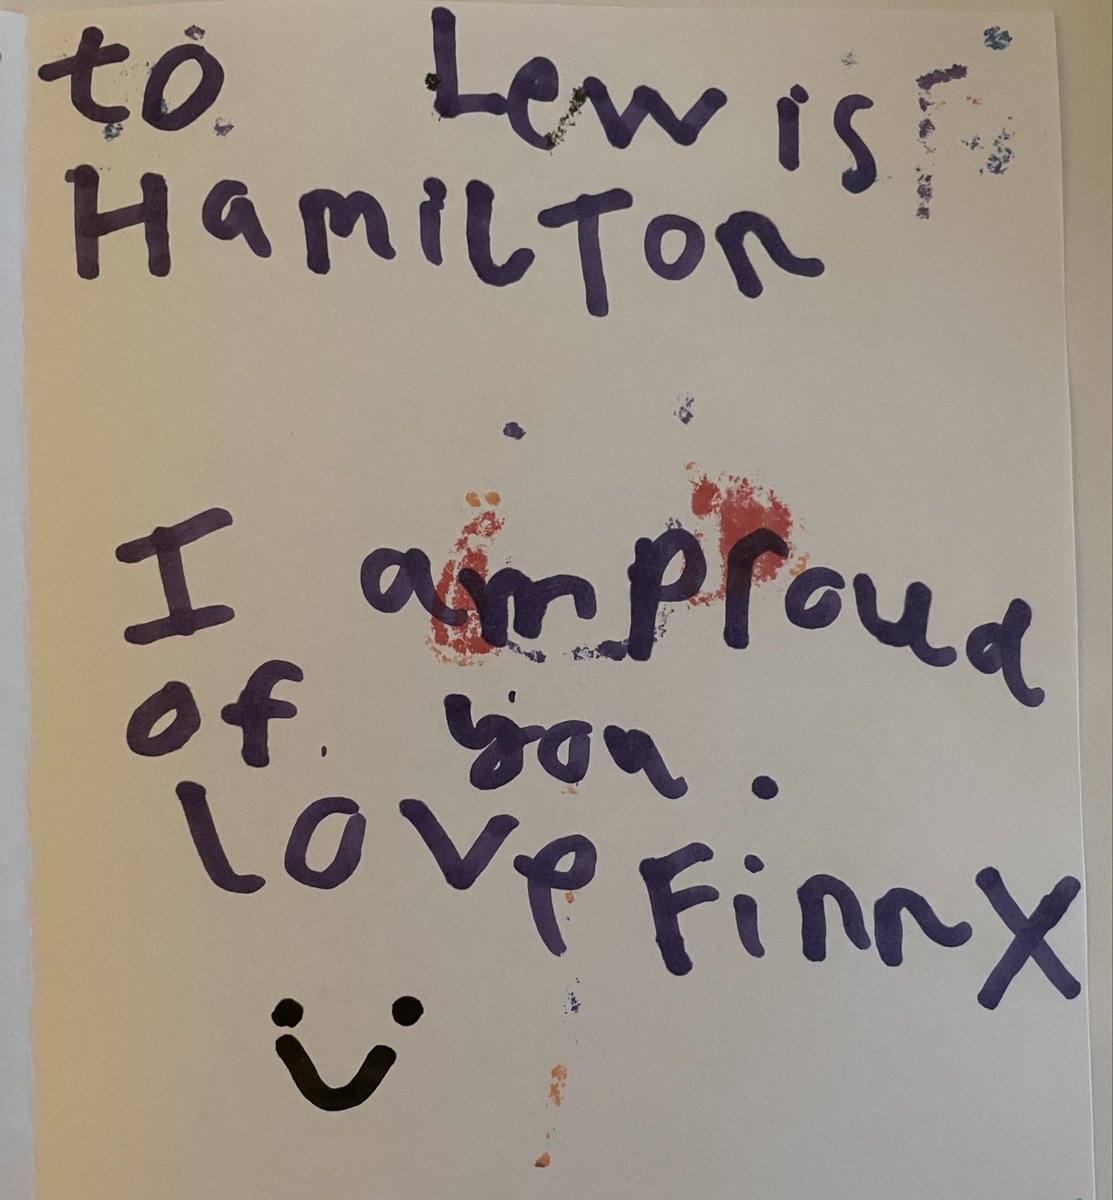 to Lewis
HamilTon
I am proud
of you.
love Finn X